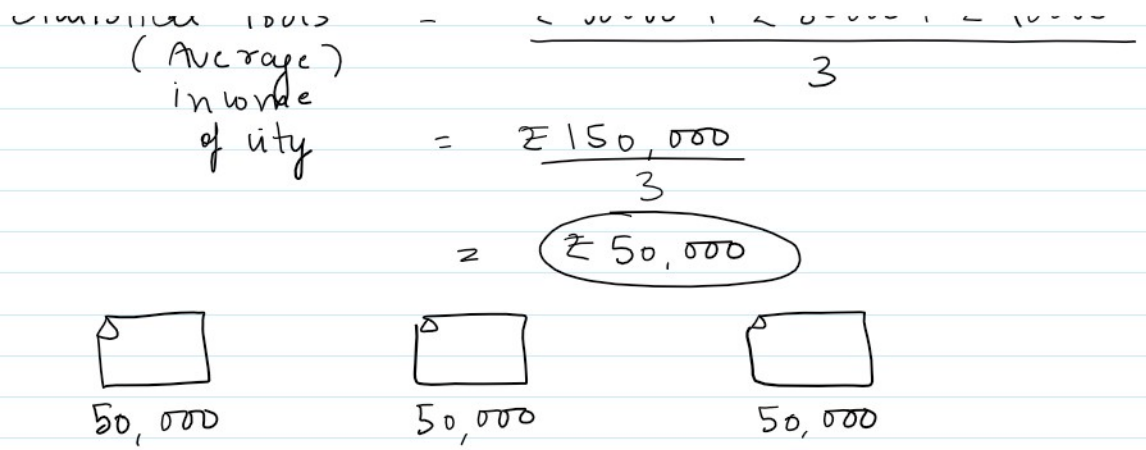 (Average)
income
of city = ₹ 150,000
3
= ₹ 50,000
50,000 50,000 50,000